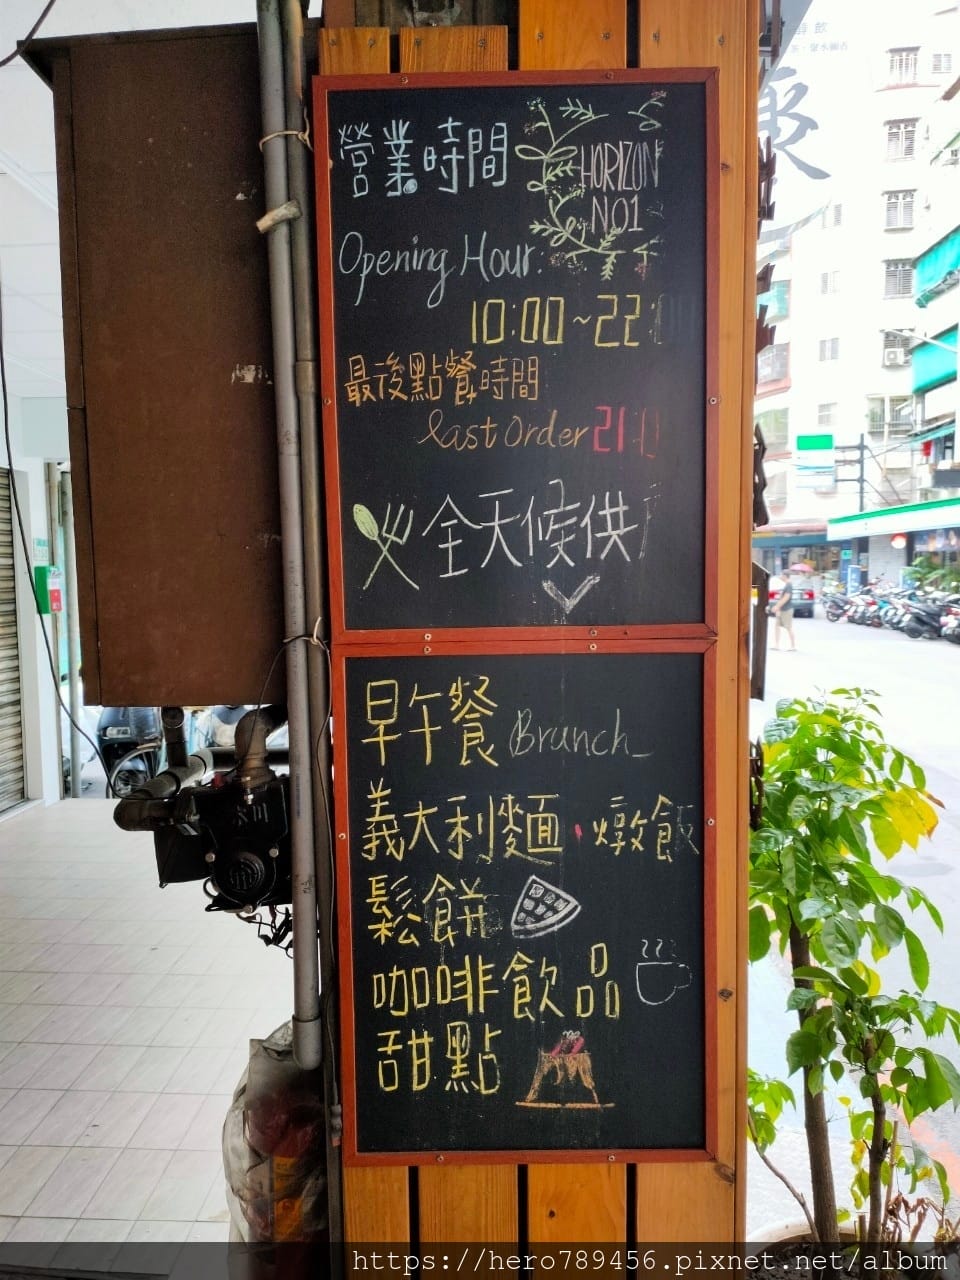 營業時間
HORIZON
NO1
Opening Hour:
10:00~22:00
最後點餐時間
last order 21:0
全天候供
早午餐 Brunch
義大利麵·燉飯
鬆餅
咖啡飲品
甜點
https://hero789456.pixnet.net/album